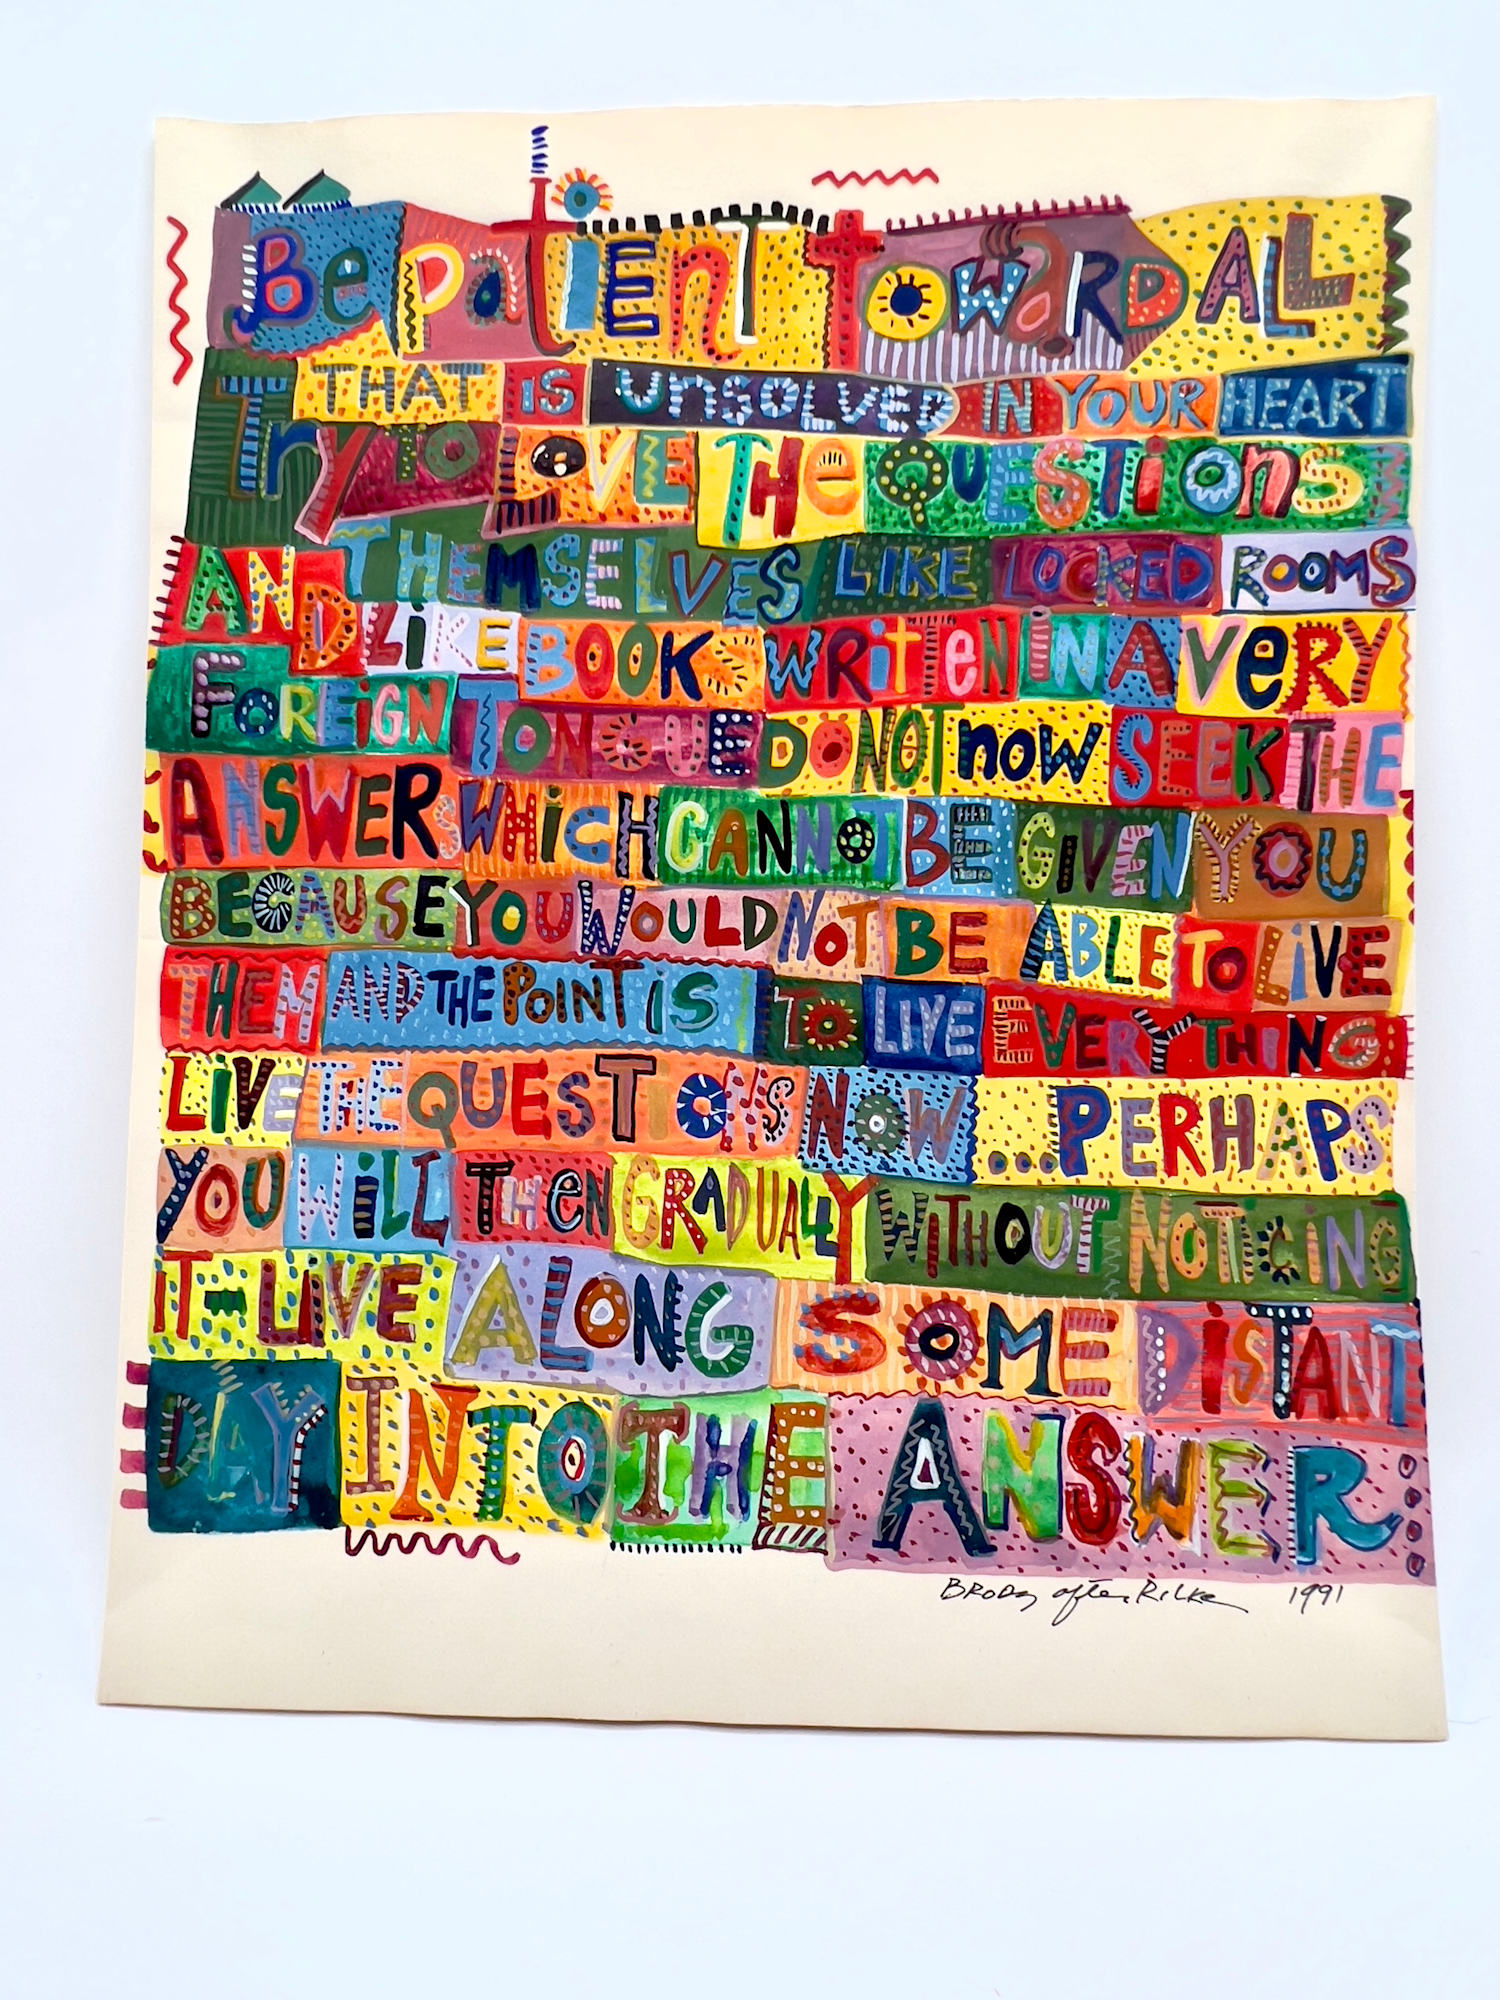 Be patiEnT toward ALL
THAT IS UNSOLVED IN YOUR HEART
Try TO LOVE THe QUESTiOnS
THEMSELVES LIKE LOCKED ROOMS
AND LiKE BOOKS WRitteN IN A VeRY
FOREiGN TONGUE DO NOT nOW SEEK THE
ANSWERS WHiCH CANNOT BE GiVEN YOU
BECAUSE YOU WOULD NOT BE ABLE TO LiVE
THEM AND THE POINT iS TO LIVE EVERYTHING
LiVE THE QUESTiONS NOW ...PERHAPS
YOU WiLL THeN GRADUALLY WITHOUT NOTiCiNG
IT-LiVE ALONG SOME DiSTANT
DAY INTO THE ANSWER
BRODY after RiLKe 1991